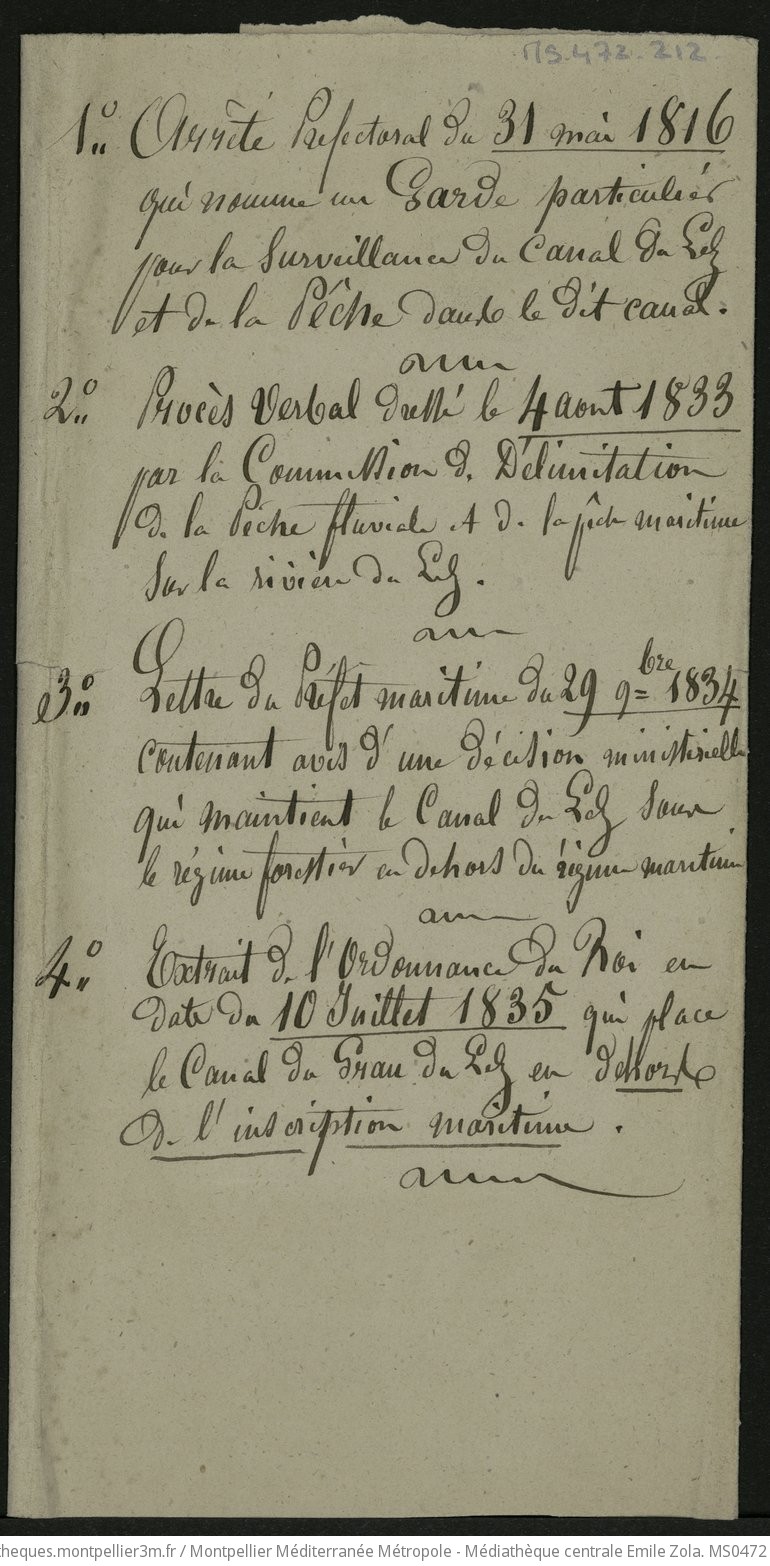 MS.472-212
1° Arrêté Prefectoral du 31 mai 1816
qui nomme un Garde particulier
pour la Surveillance du Canal du Lez
et de la Pêche dans le dit canal.
2° Procès Verbal dressé le 4 aout 1833
par la Commission de Délimitation
de la Pêche fluviale et de la pêche maritime
Sur la rivière du Lez.
3° Lettre du Préfet maritime du 29 9bre 1834
contenant avis d'une décision ministérielle
qui maintient le Canal du Lez sous
le régime forestier en dehors du régime maritime
4° Extrait de l'Ordonnance du Roi en
date du 10 Juillet 1835 qui place
le Canal du Grau du Lez en dehors
de l'inscription maritime.
theques.montpellier3m.fr / Montpellier Méditerranée Métropole - Médiathèque centrale Emile Zola. MS0472